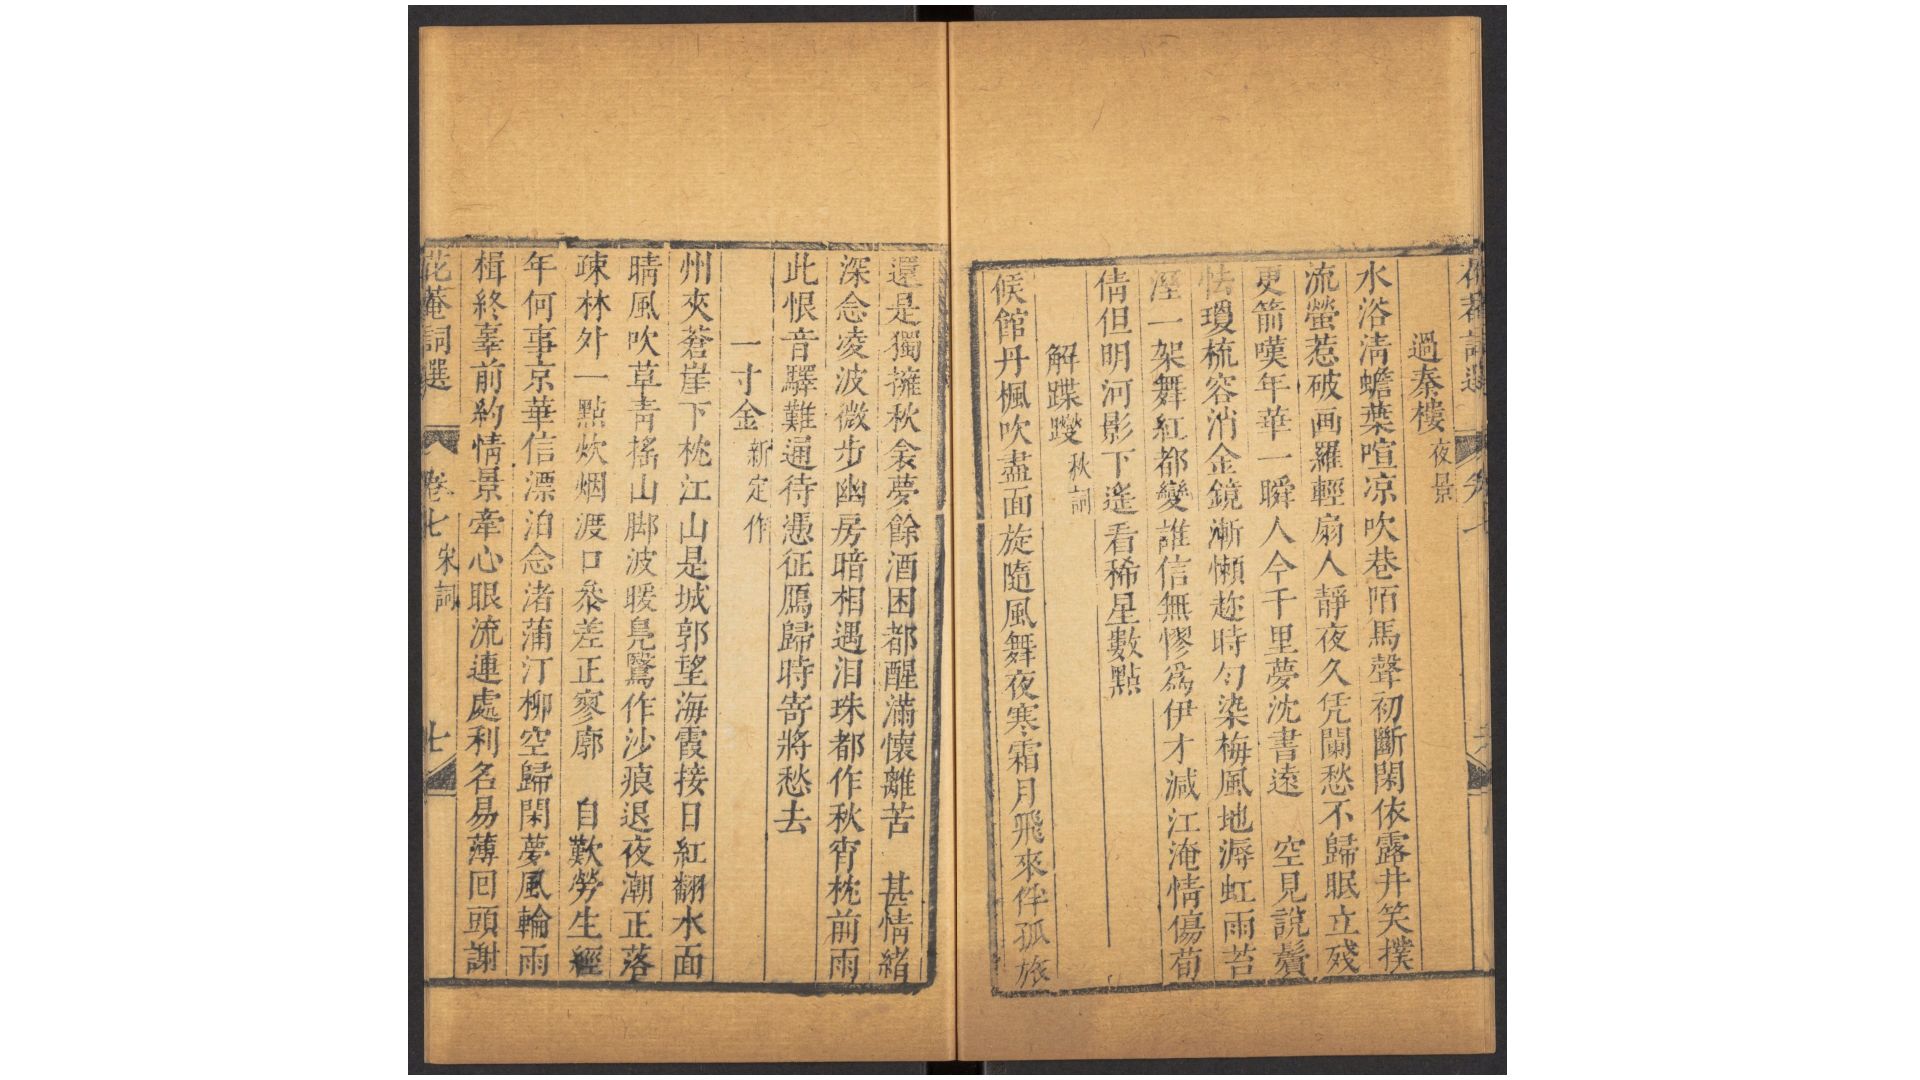 花菴詞選
卷七
過秦樓 夜景
水浴清蟾葉喧凉吹巷陌馬聲初斷閑依露井笑撲
流螢惹破画羅輕扇人靜夜久凭闌愁不歸眠立殘
更箭嘆年華一瞬人今千里夢沈書遠 空見說鬢
怯瓊梳容消金鏡漸懶趂時匀染梅風地溽虹雨苔
滋一架舞紅都變誰信無憀爲伊才減江淹情傷荀
倩但明河影下遙看稀星數點
解蹀躞 秋詞
候館丹楓吹盡面旋隨風舞夜寒霜月飛來伴孤旅
還是獨擁秋衾夢餘酒困都醒滿懷離苦 甚情緒
深念凌波微步幽房暗相遇泪珠都作秋宵枕前雨
此恨音驛難通待憑征鴈歸時寄將愁去
一寸金 新定作
州夾蒼崖下枕江山是城郭望海霞接日紅翻水面
晴風吹草青搖山脚波暖鳧鷖作沙痕退夜潮正落
疎林外一點炊烟渡口叅差正寥廓 自歎勞生經
年何事京華信漂泊念渚蒲汀柳空歸閑夢風輪雨
楫終辜前約情景牽心眼流連處利名易薄回頭謝
花菴詞選
卷七 宋詞
七